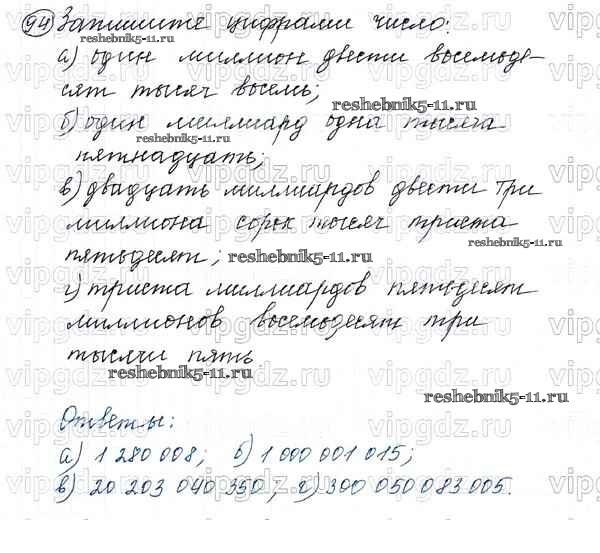 94 Запишите цифрами число:
reshebnik5-11.ru
а) один миллион двести восемьде-
сят тысяч восемь;
reshebnik5-11.ru
б) один миллиард одна тысяча
reshebnik5-11.ru
пятнадцать;
в) двадцать миллиардов двести три
миллиона сорок тысяч триста
reshebnik5-11.ru
пятьдесят;
reshebnik5-11.ru
г) триста миллиардов пятьдесят
миллионов восемьдесят три
тысячи пять.
reshebnik5-11.ru
reshebnik5-11.ru
Ответы:
а) 1 280 008; б) 1 000 001 015;
в) 20 203 040 350; г) 300 050 083 005.
vipgdz.ru